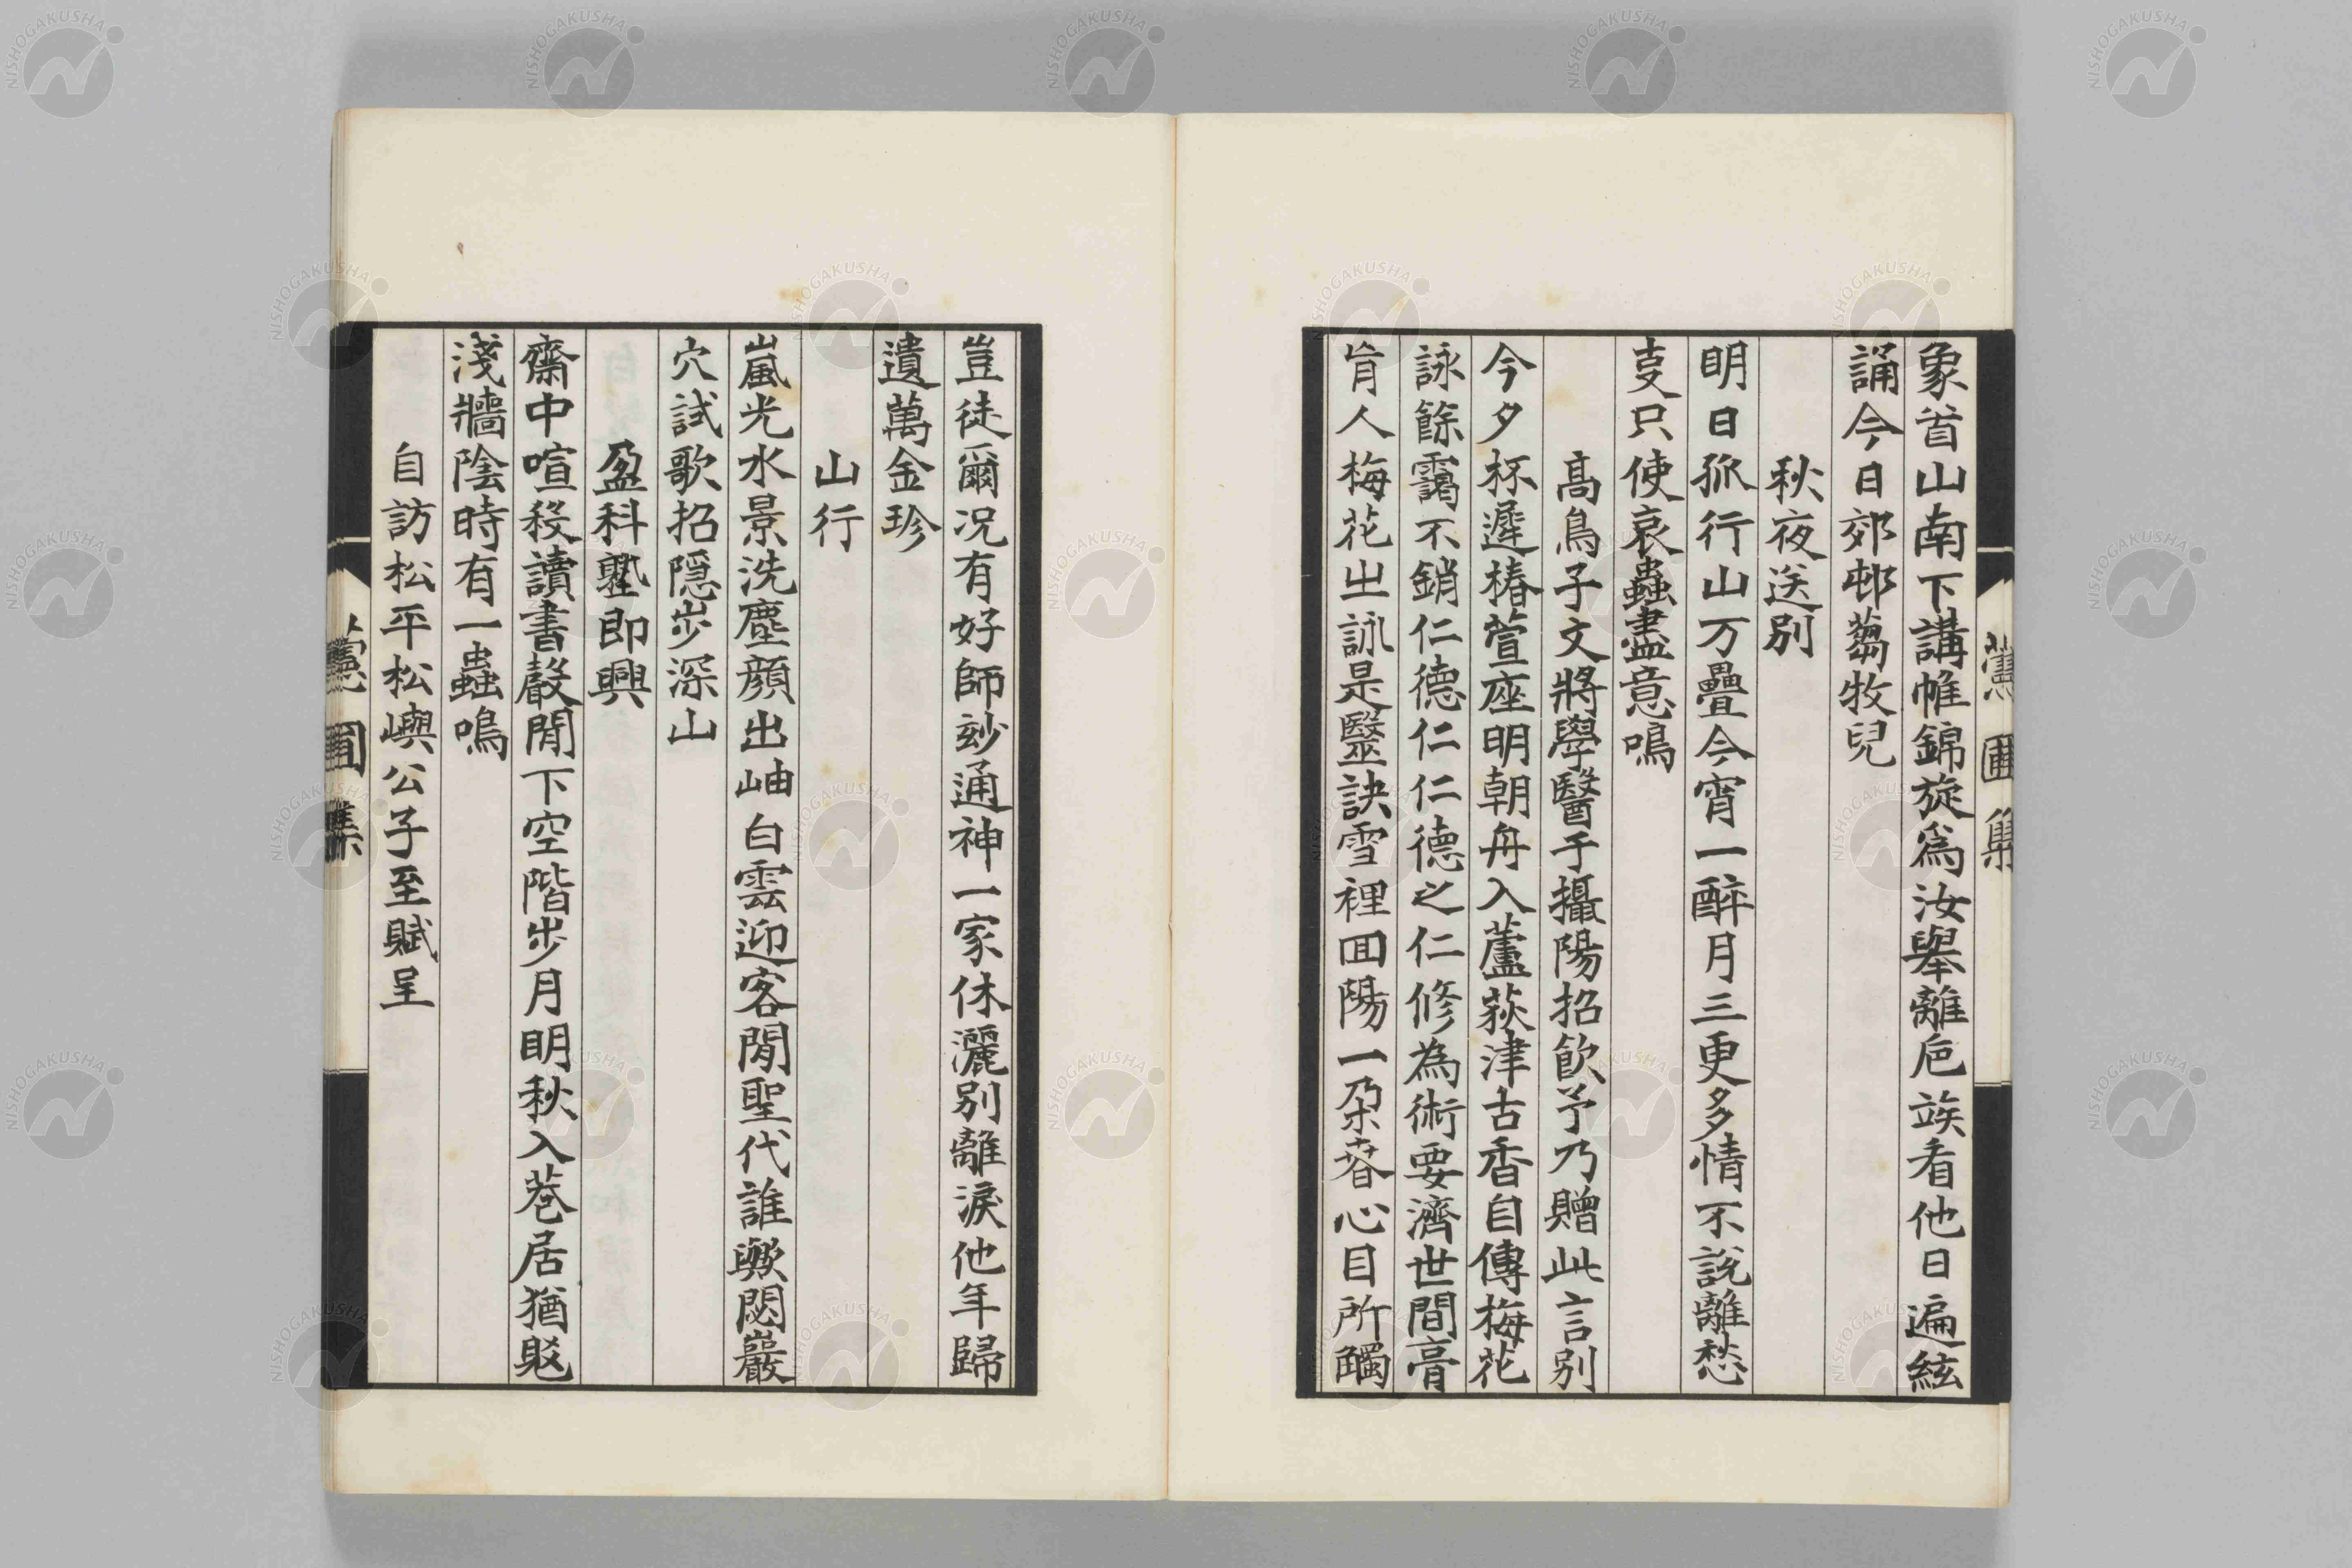 象首山南下講帷錦旋爲汝擧離巵竢看他日遍絃
誦今日郊邨蒭牧兒
秋夜送別
明日孤行山万疊今宵一醉月三更多情不說離愁
叓只使哀蟲盡意鳴
高鳥子文將學醫于攝陽招飲予乃贈此言別
今夕杯遲椿萱座明朝舟入蘆荻津古香自傳梅花
詠餘靄不銷仁德仁仁德之仁修為術要濟世間膏
肓人梅花出詠是醫訣雪裡回陽一朶春心目所觸
豈徒爾况有好師玅通神一家休灑別離淚他年歸
遺萬金珍
山行
嵐光水景洗塵顔出岫白雲迎客閒聖代誰歟閟巖
穴試歌招隱步深山
盈科塾即興
齋中喧殺讀書聲閒下空階步月明秋入巷居猶覎
淺牆陰時有一蟲鳴
自訪松平松嶼公子至賦呈
蕙圃集
蕙圃集
NISHOGAKUSHA